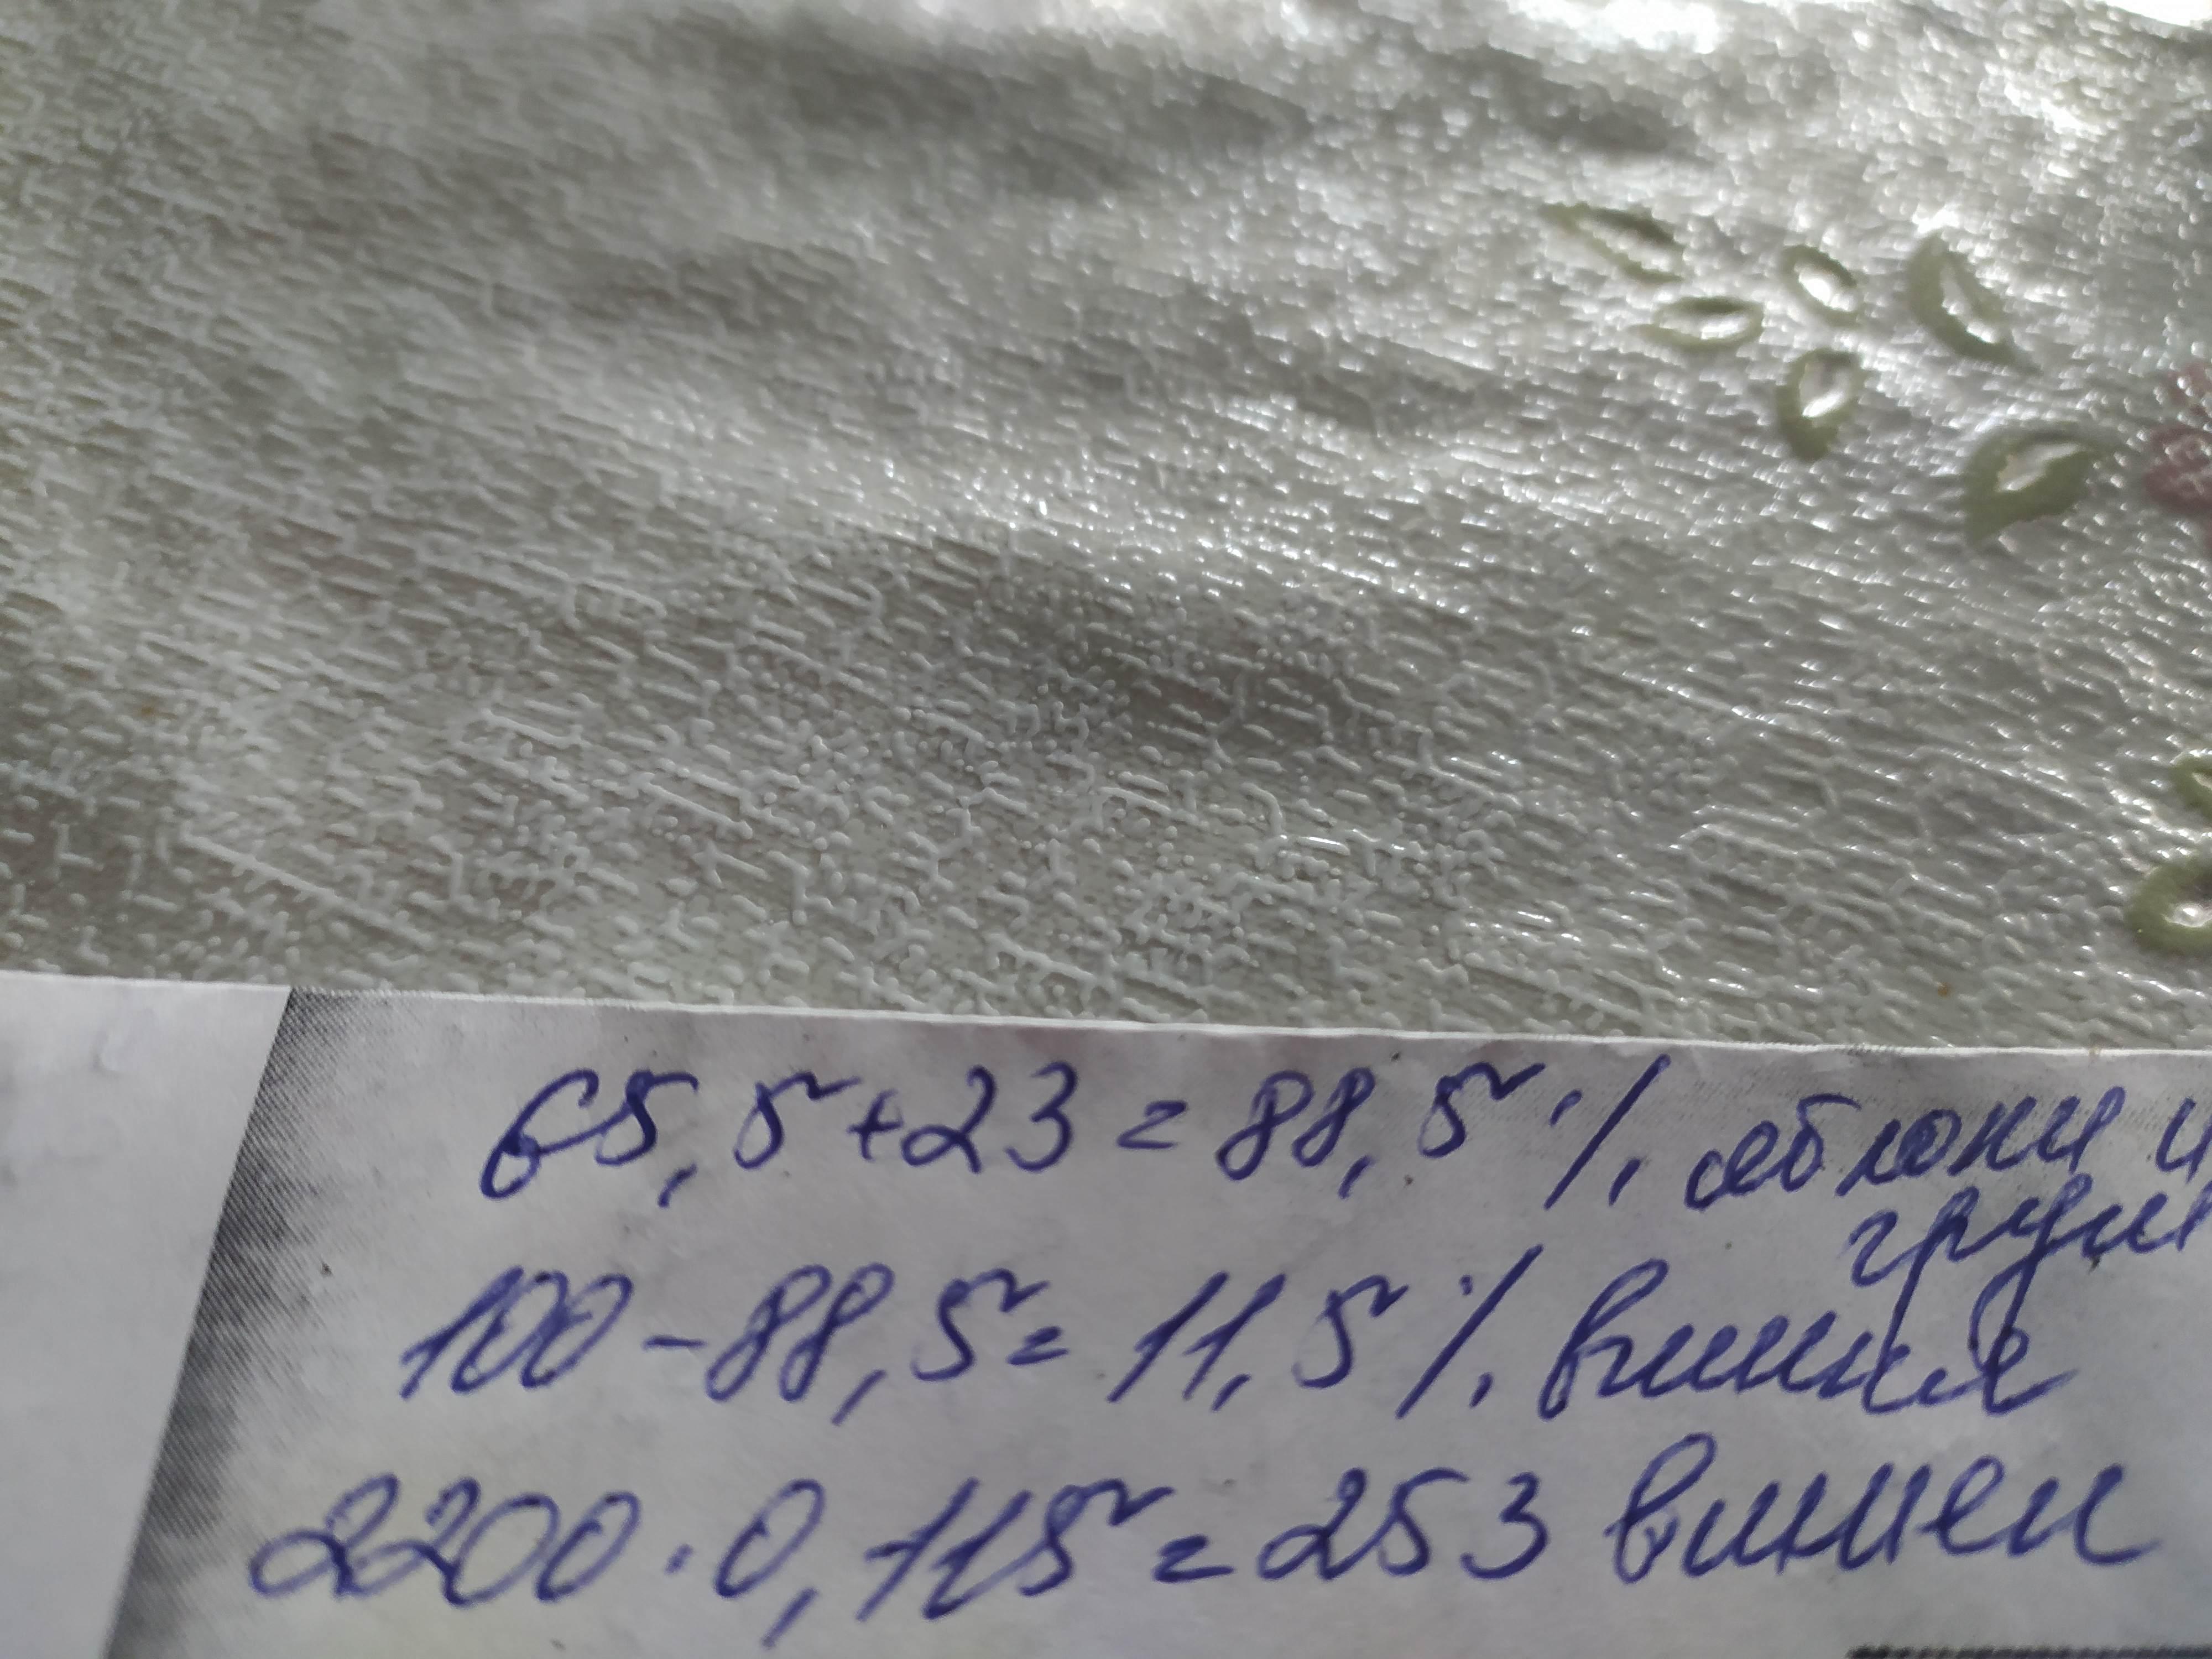 65,5+23=88,5% яблони и
груш
100-88,5=11,5% вишня
2200·0,115=253 вишен